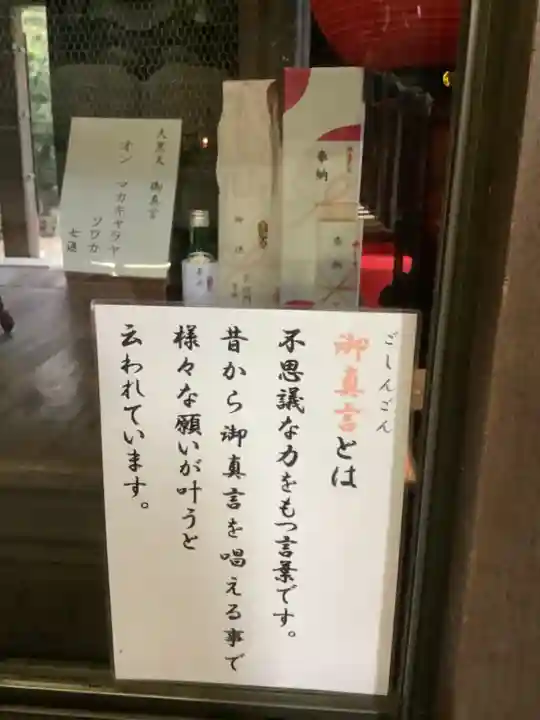 ごしんごん
御真言とは
不思議な力をもつ言葉です。
昔から御真言を唱える事で
様々な願いが叶うと
云われています。
大黒天 御真言
オン マカキャラヤ
ソワカ
七遍
奉納